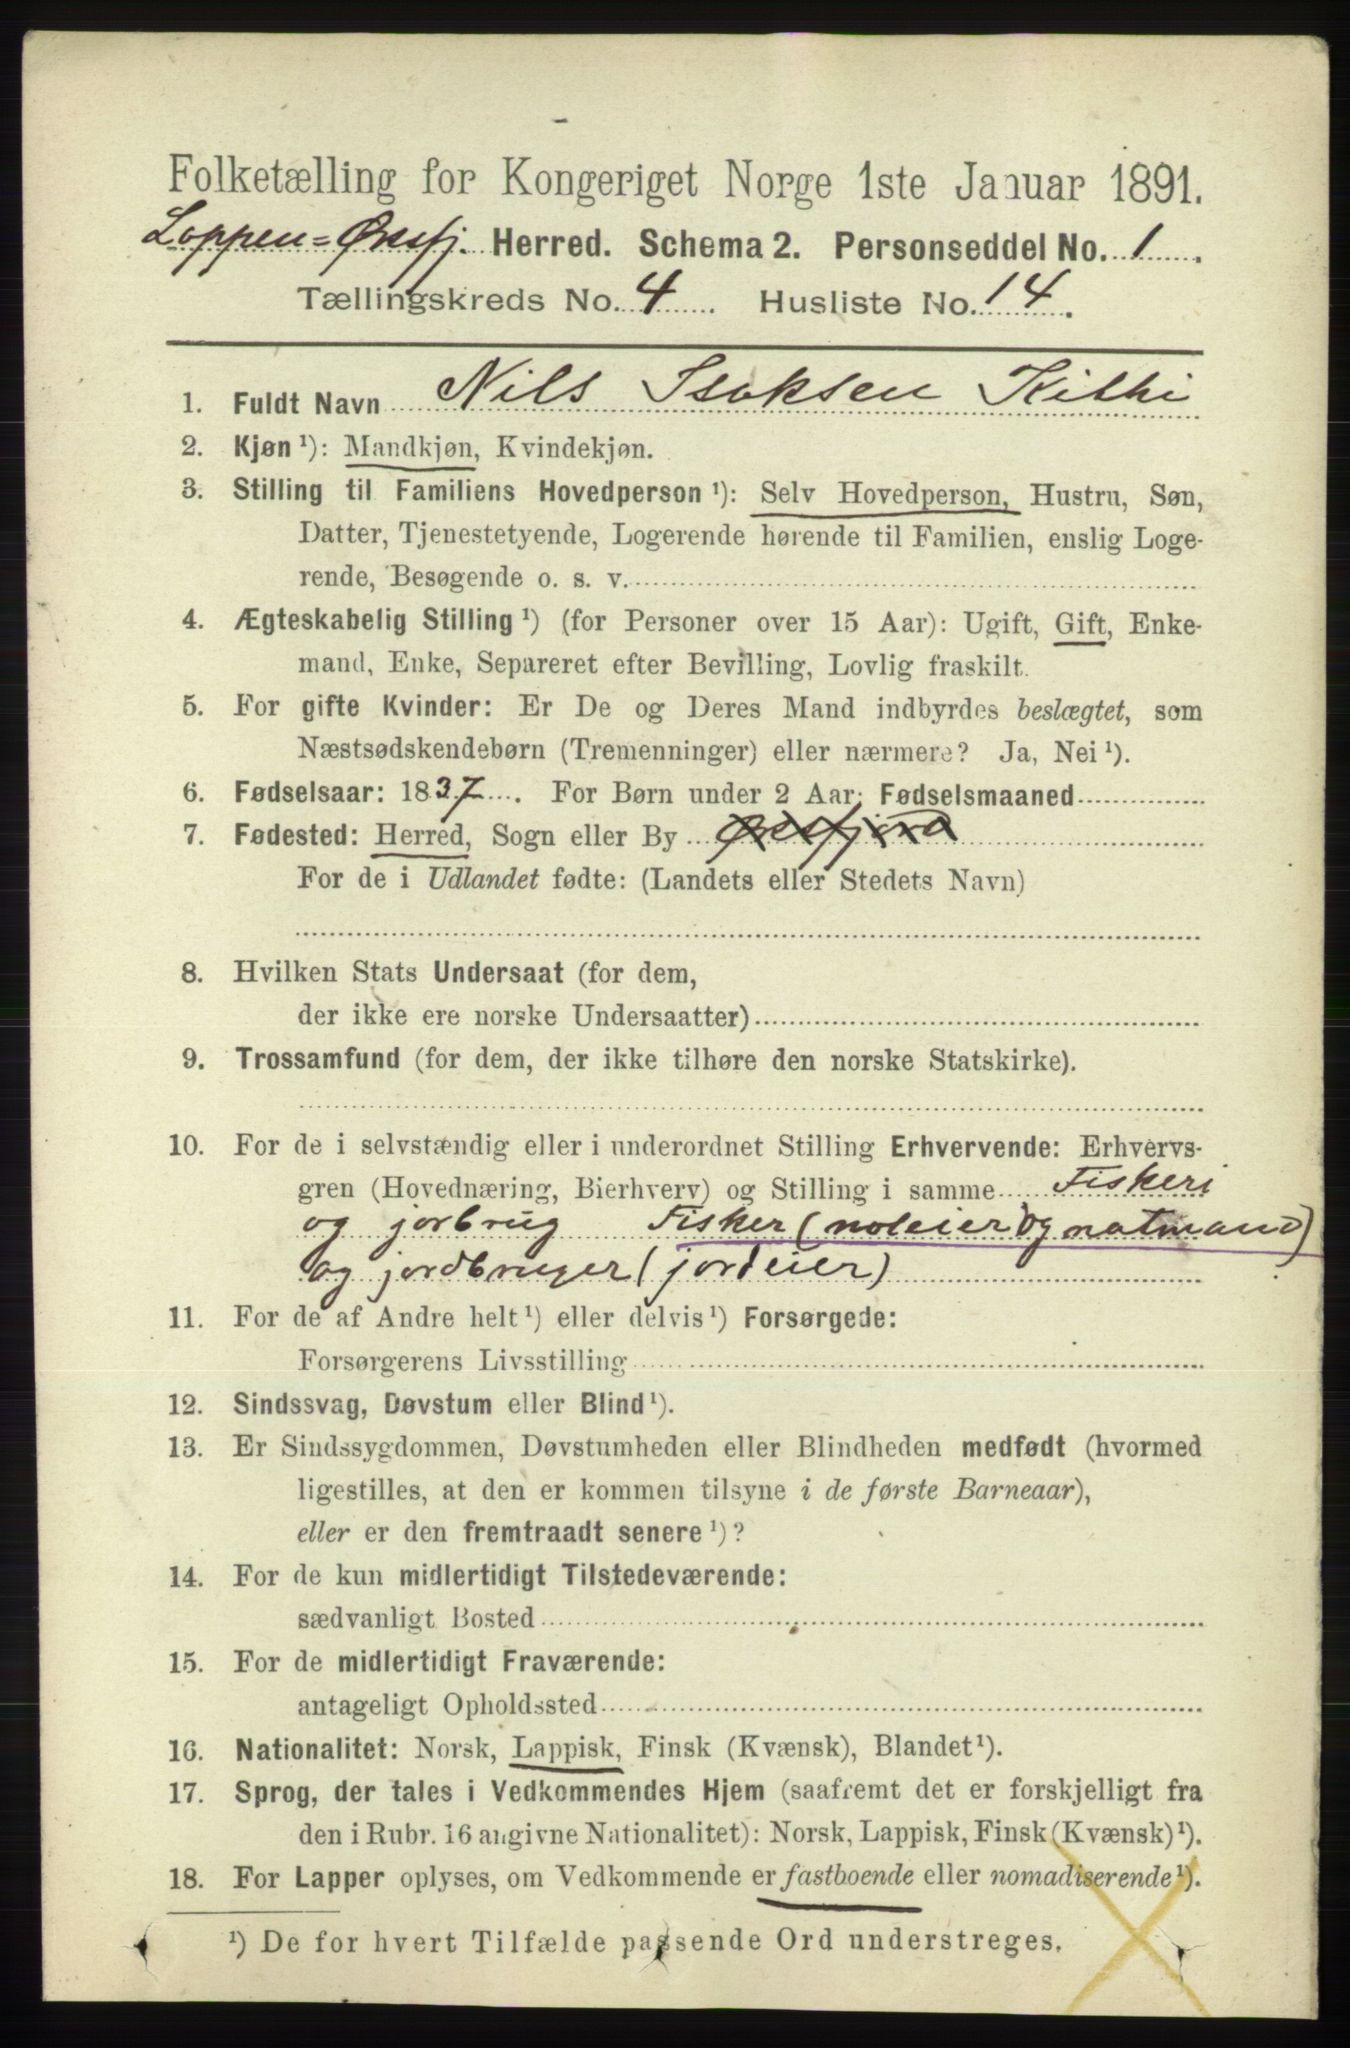 Folketælling for Kongeriget Norge 1ste Januar 1891.
Loppen=Øxsfj. Herred. Schema 2. Personseddel No. 1.
Tællingskreds No. 4. Husliste No. 14.
1. Fuldt Navn Nils Isaksen Kithi
2. Kjøn ¹): Mandkjøn, Kvindekjøn.
3. Stilling til Familiens Hovedperson ¹): Selv Hovedperson, Hustru, Søn,
Datter, Tjenestetyende, Logerende hørende til Familien, enslig Loge-
rende, Besøgende o. s. v.
4. Ægteskabelig Stilling ¹) (for Personer over 15 Aar): Ugift, Gift, Enke-
mand, Enke, Separeret efter Bevilling, Lovlig fraskilt.
5. For gifte Kvinder: Er De og Deres Mand indbyrdes beslægtet, som
Næstsødskendebørn (Tremenninger) eller nærmere? Ja, Nei ¹).
6. Fødselsaar: 1837. For Børn under 2 Aar: Fødselsmaaned
7. Fødested: Herred, Sogn eller By Øxsfjord
For de i Udlandet fødte: (Landets eller Stedets Navn)
8. Hvilken Stats Undersaat (for dem,
der ikke ere norske Undersaatter)
9. Trossamfund (for dem, der ikke tilhøre den norske Statskirke).
10. For de i selvstændig eller i underordnet Stilling Erhvervende: Erhvervs-
gren (Hovednæring, Bierhverv) og Stilling i samme Fiskeri
og jorbrug Fisker (noteier og notmand)
og jordbruger (jordeier)
11. For de af Andre helt ¹) eller delvis ¹) Forsørgede:
Forsørgerens Livsstilling
12. Sindssvag, Døvstum eller Blind ¹).
13. Er Sindssygdommen, Døvstumheden eller Blindheden medfødt (hvormed
ligestilles, at den er kommen tilsyne i de første Barneaar),
eller er den fremtraadt senere ¹)?
14. For de kun midlertidigt Tilstedeværende:
sædvanligt Bosted
15. For de midlertidigt Fraværende:
antageligt Opholdssted
16. Nationalitet: Norsk, Lappisk, Finsk (Kvænsk), Blandet ¹).
17. Sprog, der tales i Vedkommendes Hjem (saafremt det er forskjelligt fra
den i Rubr. 16 angivne Nationalitet): Norsk, Lappisk, Finsk (Kvænsk) ¹).
18. For Lapper oplyses, om Vedkommende er fastboende eller nomadiserende ¹).
¹) De for hvert Tilfælde passende Ord understreges.